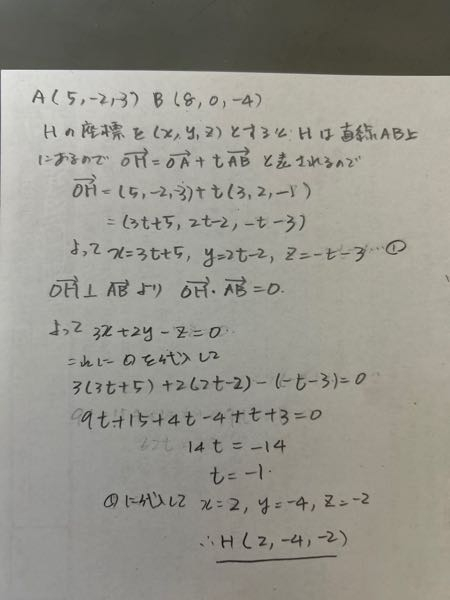 A(5,-2,3) B(8,0,-4)
Hの座標を(x,y,z)とすると、Hは直線AB上
にあるので OH→=OA→+tAB→ と表されるので
OH→=(5,-2,-3)+t(3,2,-1)
=(3t+5, 2t-2, -t-3)
よって x=3t+5, y=2t-2, z=-t-3…①
OH→⊥AB→より OH→・AB→=0.
よって 3x+2y-z=0
これに①を代入して
3(3t+5)+2(2t-2)-(-t-3)=0
9t+15+4t-4+t+3=0
14t=-14
t=-1.
①に代入して x=2, y=-4, z=-2
∴H(2,-4,-2)